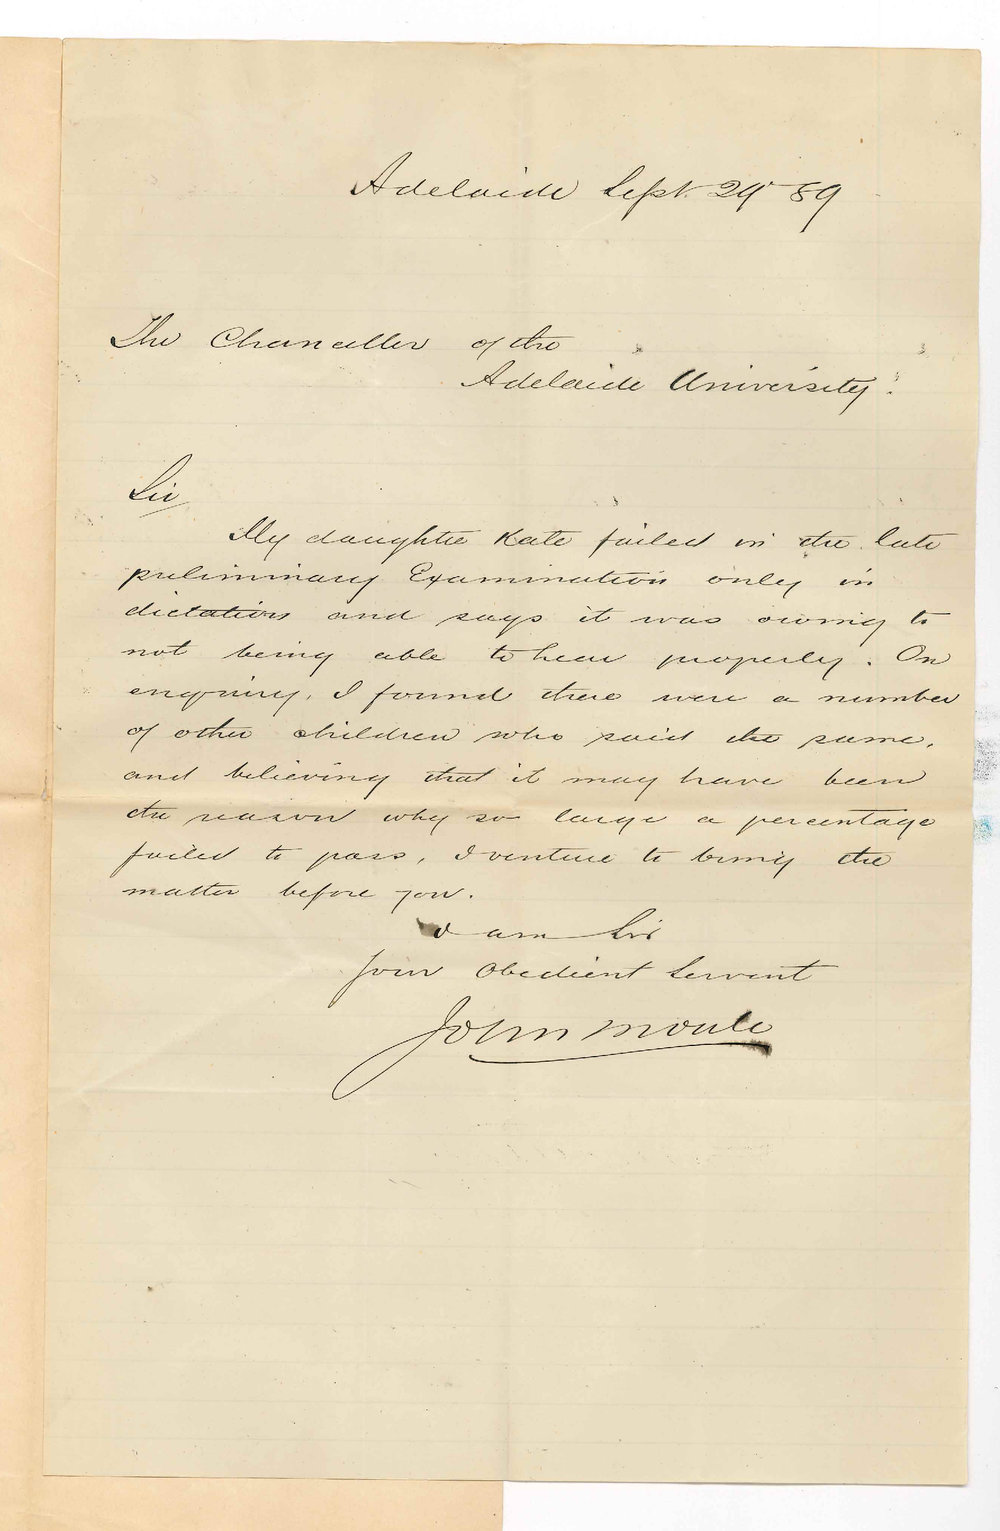 Adelaide Sept. 29 89
The Chancellor of the
Adelaide University.
Sir
My daughter Kate failed in the late
preliminary Examination only in
dictation and says it was owing to
not being able to hear properly. On
enquiry, I found there were a number
of other children who said the same,
and believing that it may have been
the reason why so large a percentage
failed to pass, I venture to bring the
matter before you.
I am Sir
Your Obedient Servant
John Moule